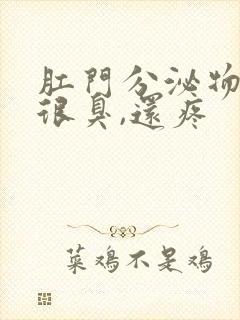 肛門分泌物
很臭,還疼
菜鸡不是鸡